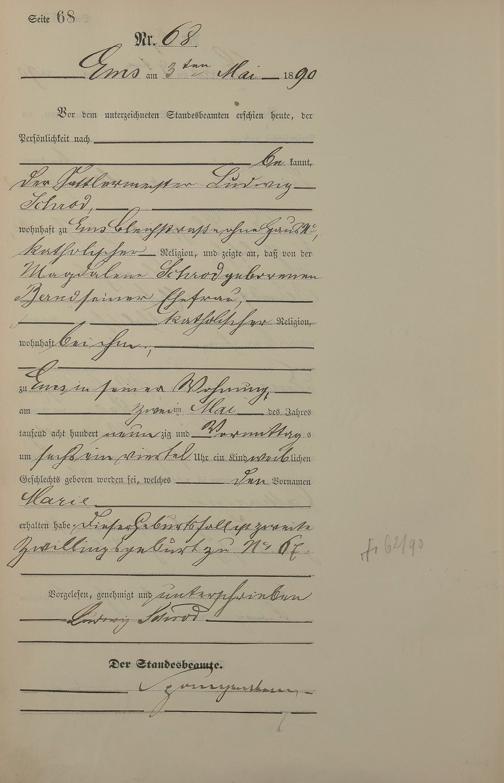 Seite 68
Nr. 68.
Ems am 3ten Mai 1890
Vor dem unterzeichneten Standesbeamten erschien heute, der
Persönlichkeit nach
bekannt,
der Sattlermeister Ludwig
Schrod,
wohnhaft zu Ems Blechstraße ohne Haus No,
katholischer Religion, und zeigte an, daß von der
Magdalene Schrod geborenen
Band seiner Ehefrau,
katholischer Religion,
wohnhaft bei ihm,
zu Ems in seiner Wohnung,
am zweiten Mai des Jahres
tausend acht hundert neunzig und Vormittags
um sechs ein viertel Uhr ein Kind weiblichen
Geschlechts geboren worden sei, welches den Vornamen
Marie
erhalten habe, dieser Geburtsfall ist zweite
Zwillingsgeburt zu No 67.
62/90
Vorgelesen, genehmigt und unterschrieben
Ludwig Schrod
Der Standesbeamte.